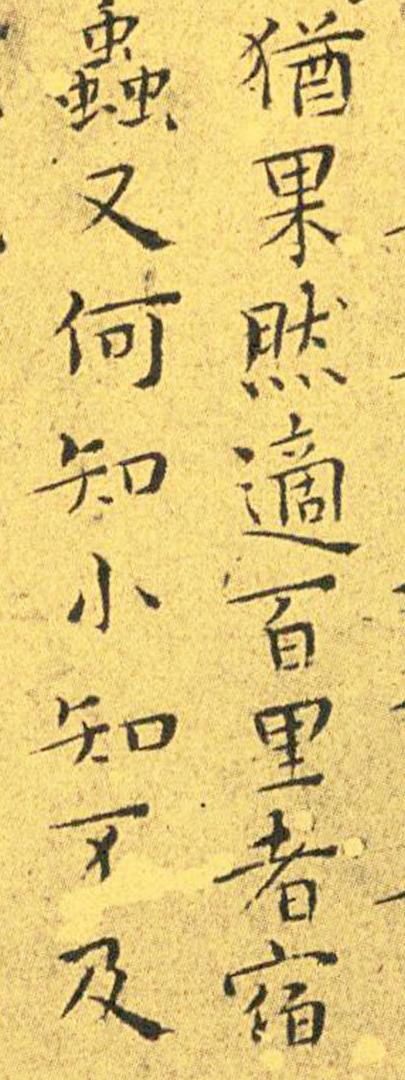 猶果然適百里者宿
蟲又何知小知不及